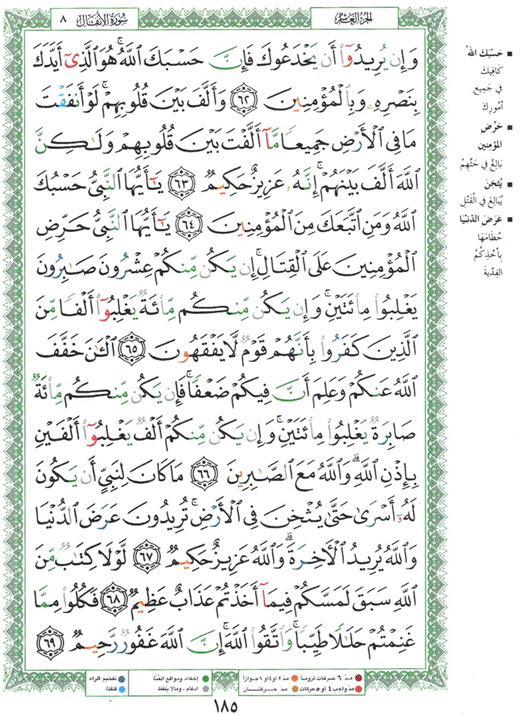 سورة الأنفال ٨
الجزء العاشر
وَإِن يُرِيدُوٓا۟ أَن يَخْدَعُوكَ فَإِنَّ حَسْبَكَ ٱللَّهُ ۚ هُوَ ٱلَّذِىٓ أَيَّدَكَ
بِنَصْرِهِۦ وَبِٱلْمُؤْمِنِينَ ٦٢ وَأَلَّفَ بَيْنَ قُلُوبِهِمْ ۚ لَوْ أَنفَقْتَ
مَا فِى ٱلْأَرْضِ جَمِيعًا مَّآ أَلَّفْتَ بَيْنَ قُلُوبِهِمْ وَلَـٰكِنَّ
ٱللَّهَ أَلَّفَ بَيْنَهُمْ ۚ إِنَّهُۥ عَزِيزٌ حَكِيمٌ ٦٣ يَـٰٓأَيُّهَا ٱلنَّبِىُّ حَسْبُكَ
ٱللَّهُ وَمَنِ ٱتَّبَعَكَ مِنَ ٱلْمُؤْمِنِينَ ٦٤ يَـٰٓأَيُّهَا ٱلنَّبِىُّ حَرِّضِ
ٱلْمُؤْمِنِينَ عَلَى ٱلْقِتَالِ ۚ إِن يَكُن مِّنكُمْ عِشْرُونَ صَـٰبِرُونَ
يَغْلِبُوا۟ مِا۟ئَتَيْنِ ۚ وَإِن يَكُن مِّنكُم مِّا۟ئَةٌ يَغْلِبُوٓا۟ أَلْفًا مِّنَ
ٱلَّذِينَ كَفَرُوا۟ بِأَنَّهُمْ قَوْمٌ لَّا يَفْقَهُونَ ٦٥ ٱلْـَٔـٰنَ خَفَّفَ
ٱللَّهُ عَنكُمْ وَعَلِمَ أَنَّ فِيكُمْ ضَعْفًا ۚ فَإِن يَكُن مِّنكُم مِّا۟ئَةٌ
صَابِرَةٌ يَغْلِبُوا۟ مِا۟ئَتَيْنِ ۚ وَإِن يَكُن مِّنكُمْ أَلْفٌ يَغْلِبُوٓا۟ أَلْفَيْنِ
بِإِذْنِ ٱللَّهِ ۗ وَٱللَّهُ مَعَ ٱلصَّـٰبِرِينَ ٦٦ مَا كَانَ لِنَبِىٍّ أَن يَكُونَ
لَهُۥٓ أَسْرَىٰ حَتَّىٰ يُثْخِنَ فِى ٱلْأَرْضِ ۚ تُرِيدُونَ عَرَضَ ٱلدُّنْيَا
وَٱللَّهُ يُرِيدُ ٱلْـَٔاخِرَةَ ۗ وَٱللَّهُ عَزِيزٌ حَكِيمٌ ٦٧ لَّوْلَا كِتَـٰبٌ مِّنَ
ٱللَّهِ سَبَقَ لَمَسَّكُمْ فِيمَآ أَخَذْتُمْ عَذَابٌ عَظِيمٌ ٦٨ فَكُلُوا۟ مِمَّا
غَنِمْتُمْ حَلَـٰلًا طَيِّبًا ۚ وَٱتَّقُوا۟ ٱللَّهَ ۚ إِنَّ ٱللَّهَ غَفُورٌ رَّحِيمٌ ٦٩
حَسْبَكَ اللهُ
كَافِيكَ
فِي جَمِيعِ
أُمُورِكَ
حَرِّضِ
المُؤْمِنِين
بَالِغْ فِي حَثِّهِمْ
يُثْخِنَ
يُبَالِغَ فِي القَتْلِ
عَرَضَ الدُّنْيَا
حُطَامَهَا
بِأَخْذِكُمُ
الفِدْيَةَ
مد ٦ حركات لزوماً
مد ٢ أو ٤ أو ٦ جوازاً
إخفاء، ومواقع الغُنَّة
تفخيم الراء
مد واجب ٤ أو ٥ حركات
مد حركتان
ادغام، وما لا يلفظ
قلقلة
١٨٥